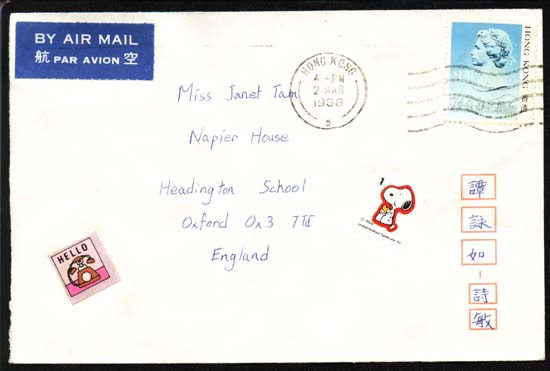 BY AIR MAIL
航 PAR AVION 空
HONG KONG
4 -PM
2 MAR
1988
5
HONG KONG 香港
$1.70
Miss Janet Tam
Napier House
Headington School
Oxford Ox3 7TE
England
HELLO
1
譚
詠
如
-
詩
敏